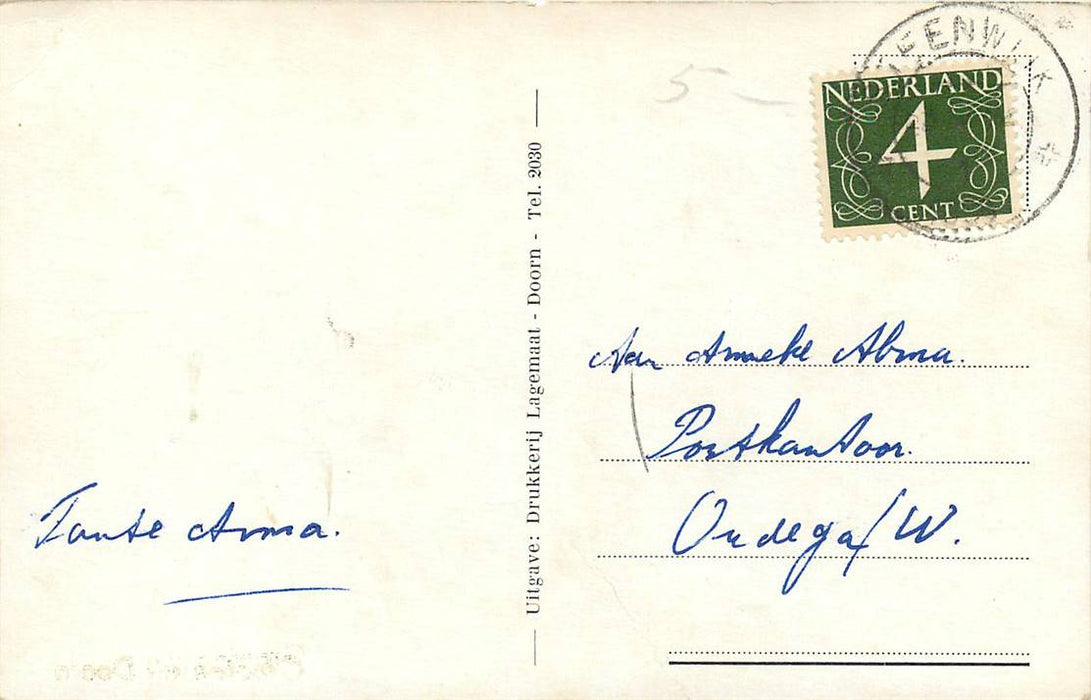 EENWIJK
5 –
NEDERLAND
4
CENT
Uitgave: Drukkerij Lagemaat - Doorn - Tel. 2030
Aan Anneke Abma.
Postkantoor.
Oudega/W.
Tante Anna.